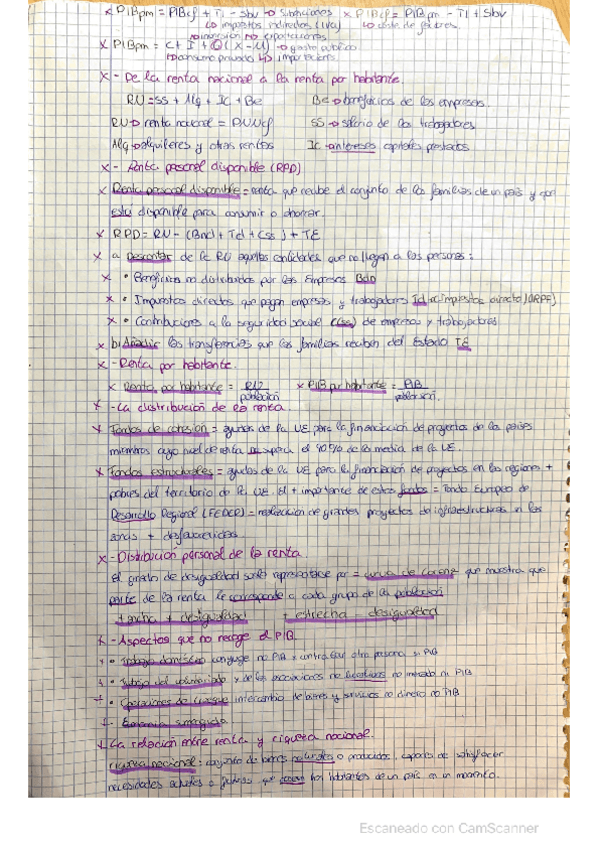 x PIBpm = PIBcf + Ti - Sbv → Subvenciones x PIBcf = PIBpm - Ti + Sbv
↳ impuestos indirectos (IVA) ↳ coste de factores.
→ inversión → exportaciones
x PIBpm = C + I + G (X - M) → gasto público
↳ consumo privado ↳ importaciones
x - De la renta nacional a la renta por habitante.
RN = SS + Alq + IC + Be Be → beneficios de las empresas.
RN → renta nacional = PNNcf SS → salario de los trabajadores
Alq → alquileres y otras rentas IC → intereses capitales prestados
x - Renta personal disponible (RPD)
x Renta personal disponible = renta que recibe el conjunto de las familias de un país y que
está disponible para consumir o ahorrar.
x RPD = RN - (Bnd + Td + Css) + TE
x a Descontar de la RN aquellas cantidades que no llegan a las personas:
x • Beneficios no distribuidos por las Empresas Bdn
x • Impuestos directos que pagan empresas y trabajadores Id → impuestos directo) (IRPF)
x • Contribuciones a la seguridad social C(ss) de empresas y trabajadores
x b) Añadir las transferencias que las familias reciben del Estado TE
x - Renta por habitante.
x Renta por habitante = RN / población x PIB por habitante = PIB / población.
x - La distribución de la renta.
x Fondos de cohesión = ayudas de la UE para la financiación de proyectos de los países
miembros cuyo nivel de renta no supera el 90% de la media de la UE.
x Fondos estructurales = ayudas de la UE para la financiación de proyectos en las regiones +
pobres del territorio de la UE. El + importante de estos fondos = Fondo Europeo de
Desarrollo Regional (FEDER) = realización de grandes proyectos de infraestructuras en las
zonas + desfavorecidas.
x - Distribución personal de la renta
El grado de desigualdad suele representarse por = curva de Lorenz que muestra que
parte de la renta le corresponde a cada grupo de la población
+ ancha + desigualdad + estrecha - desigualdad
x - Aspectos que no recoge el PIB.
• Trabajo doméstico conyuge no PIB x contratar otra persona si PIB
• Trabajo del voluntariado y de las asociaciones no lucrativas no mercado ni PIB
• Operaciones de trueque intercambio de bienes y servicios no dinero no PIB
Economía sumergida
La relación entre renta y riqueza nacional.
riqueza nacional: conjunto de bienes naturales o producidos, capaces de satisfacer
necesidades actuales o futuras, que poseen los habitantes de un país en un momento.
Escaneado con CamScanner